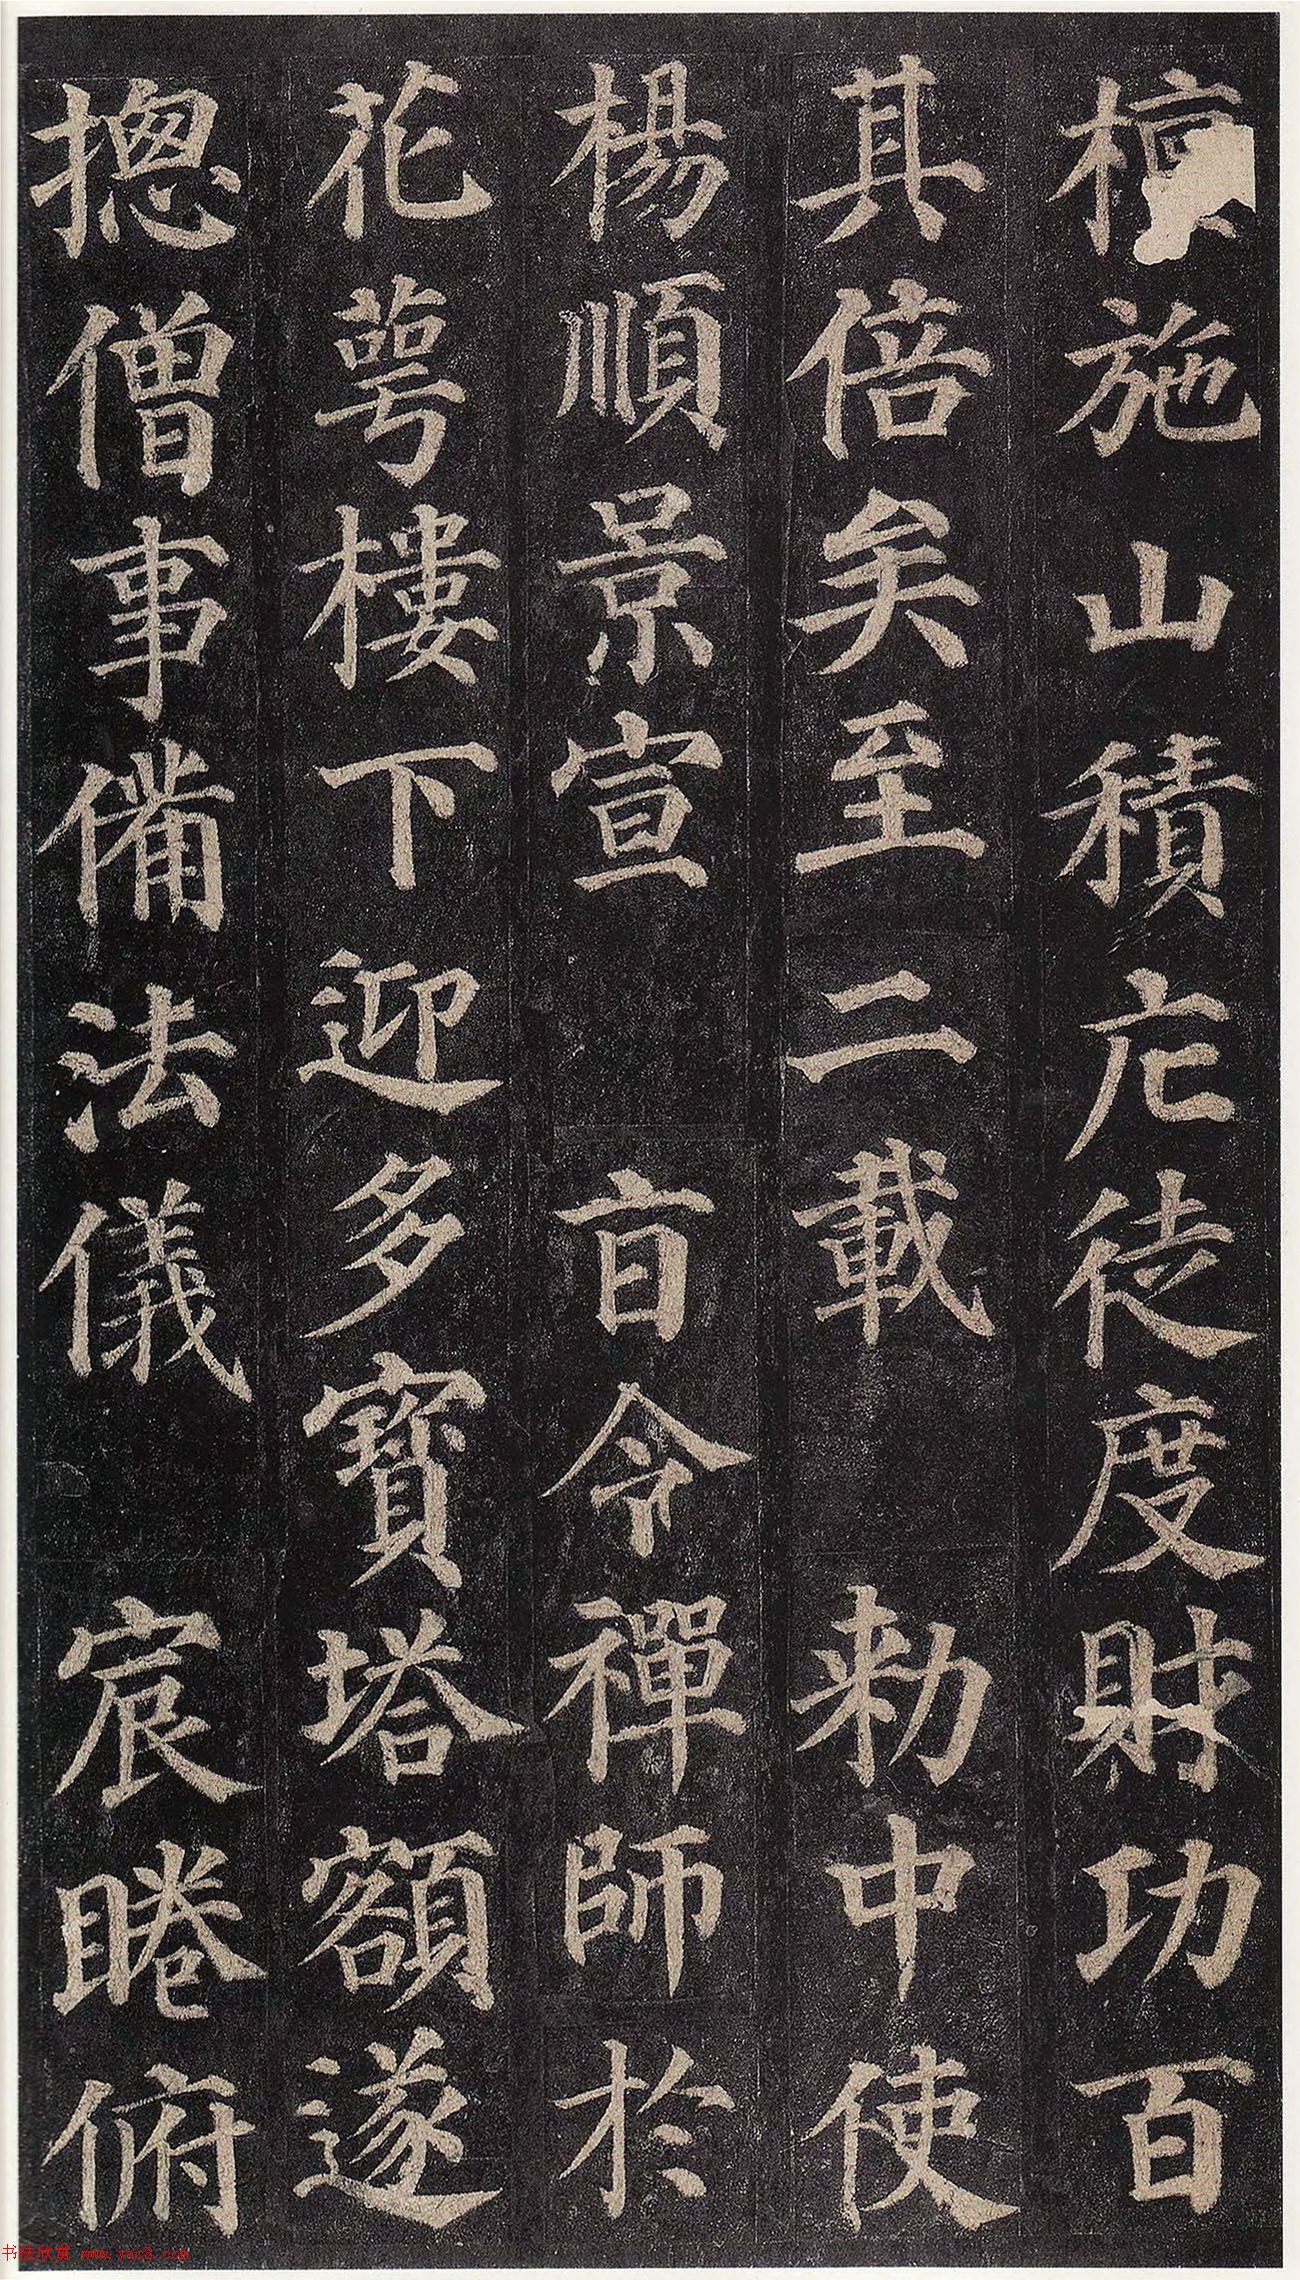 檀施山積庀徒度財功百
其倍矣至二載敕中使
楊順景宣旨令禪師於
花萼樓下迎多寶塔額遂
揔僧事備法儀宸睠俯
书法欣赏 www.yac8.com